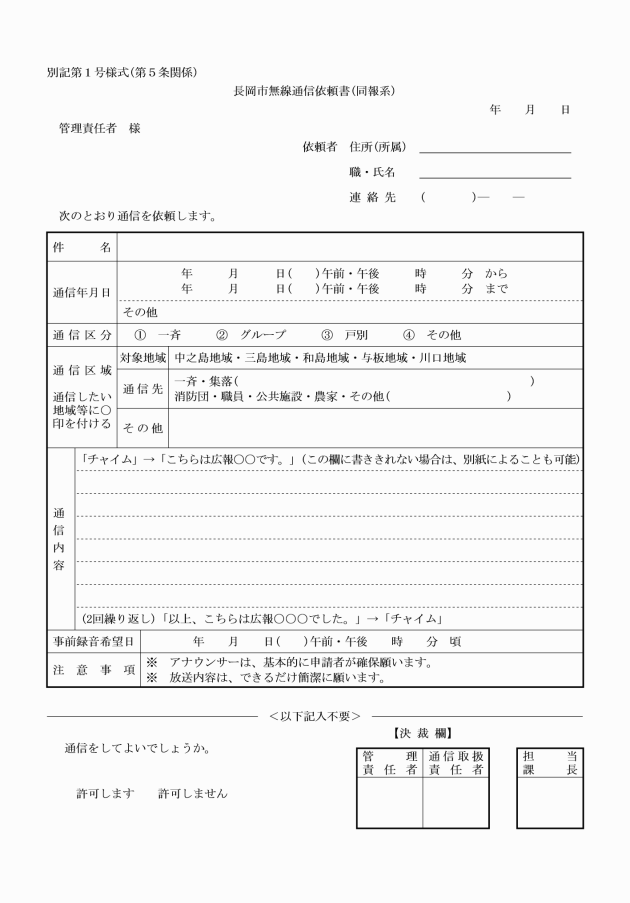 別記第１号様式(第５条関係)
長岡市無線通信依頼書(同報系)
年　　月　　日
管理責任者　様
依頼者　住所(所属)
職・氏名
連 絡 先　　(　　　　)―　　―
次のとおり通信を依頼します。
件　　　名
通信年月日
年　　　月　　　日(　　)午前・午後　　　時　　　分　から
年　　　月　　　日(　　)午前・午後　　　時　　　分　まで
その他
通 信 区 分　①　一斉　　　②　グループ　　　③　戸別　　　④　その他
通 信 区 域
通信したい
地域等に○
印を付ける
対象地域　中之島地域・三島地域・和島地域・与板地域・川口地域
通 信 先
一斉・集落(　　　　　　　　　　　　　　　　　　　　　　　　)
消防団・職員・公共施設・農家・その他(　　　　　　　　　　)
そ の 他
通信内容
「チャイム」→「こちらは広報○○です。」(この欄に書ききれない場合は、別紙によることも可能)
(2回繰り返し)「以上、こちらは広報○○○でした。」→「チャイム」
事前録音希望日　　　　年　　月　　日(　　)午前・午後　　時　　分　頃
注　意　事　項
※　アナウンサーは、基本的に申請者が確保願います。
※　放送内容は、できるだけ簡潔に願います。
＜以下記入不要＞
【決 裁 欄】
通信をしてよいでしょうか。
管　　　理
責　任　者
通信取扱
責　任　者
担　　　当
課　　　長
許可します　　許可しません